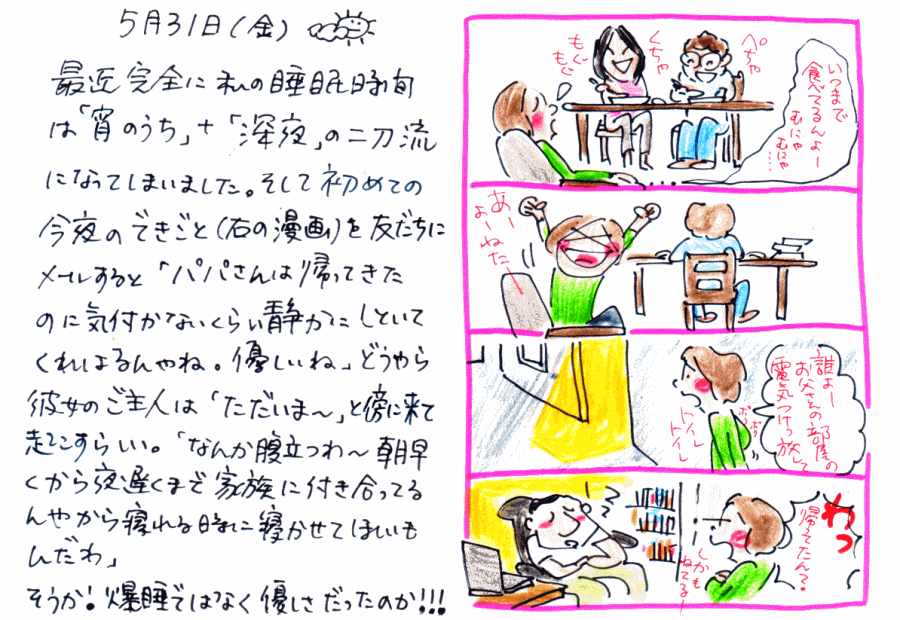 5月31日(金)
最近完全に私の睡眠時間
は「宵のうち」+「深夜」の二刀流
になってしまいました。そして初めての
今夜のできごと(右の漫画)を友だちに
メールすると「パパさんは帰ってきた
のに気付かないくらい静かにしといて
くれはるんやね。優しいね」どうやら
彼女のご主人は「ただいま〜」と傍に来て
起こすらしい。「なんか腹立つわ〜朝早
くから夜遅くまで家族に付き合ってる
んやから寝れる時に寝かせてほしいも
んだわ」
そうか!爆睡ではなく優しさだったのか!!!
ぺちゃ
くちゃ
もぐ
もぐ
いつまで
食べてるんよー
むにゃ
むにゃ
……
あー
よーねたー
誰よー
お父さんの部屋の
電気つけっ放して
ボソボソ
トイレ
トイレ
わっ
帰ってたん?
しかも
ねてるー
zzz